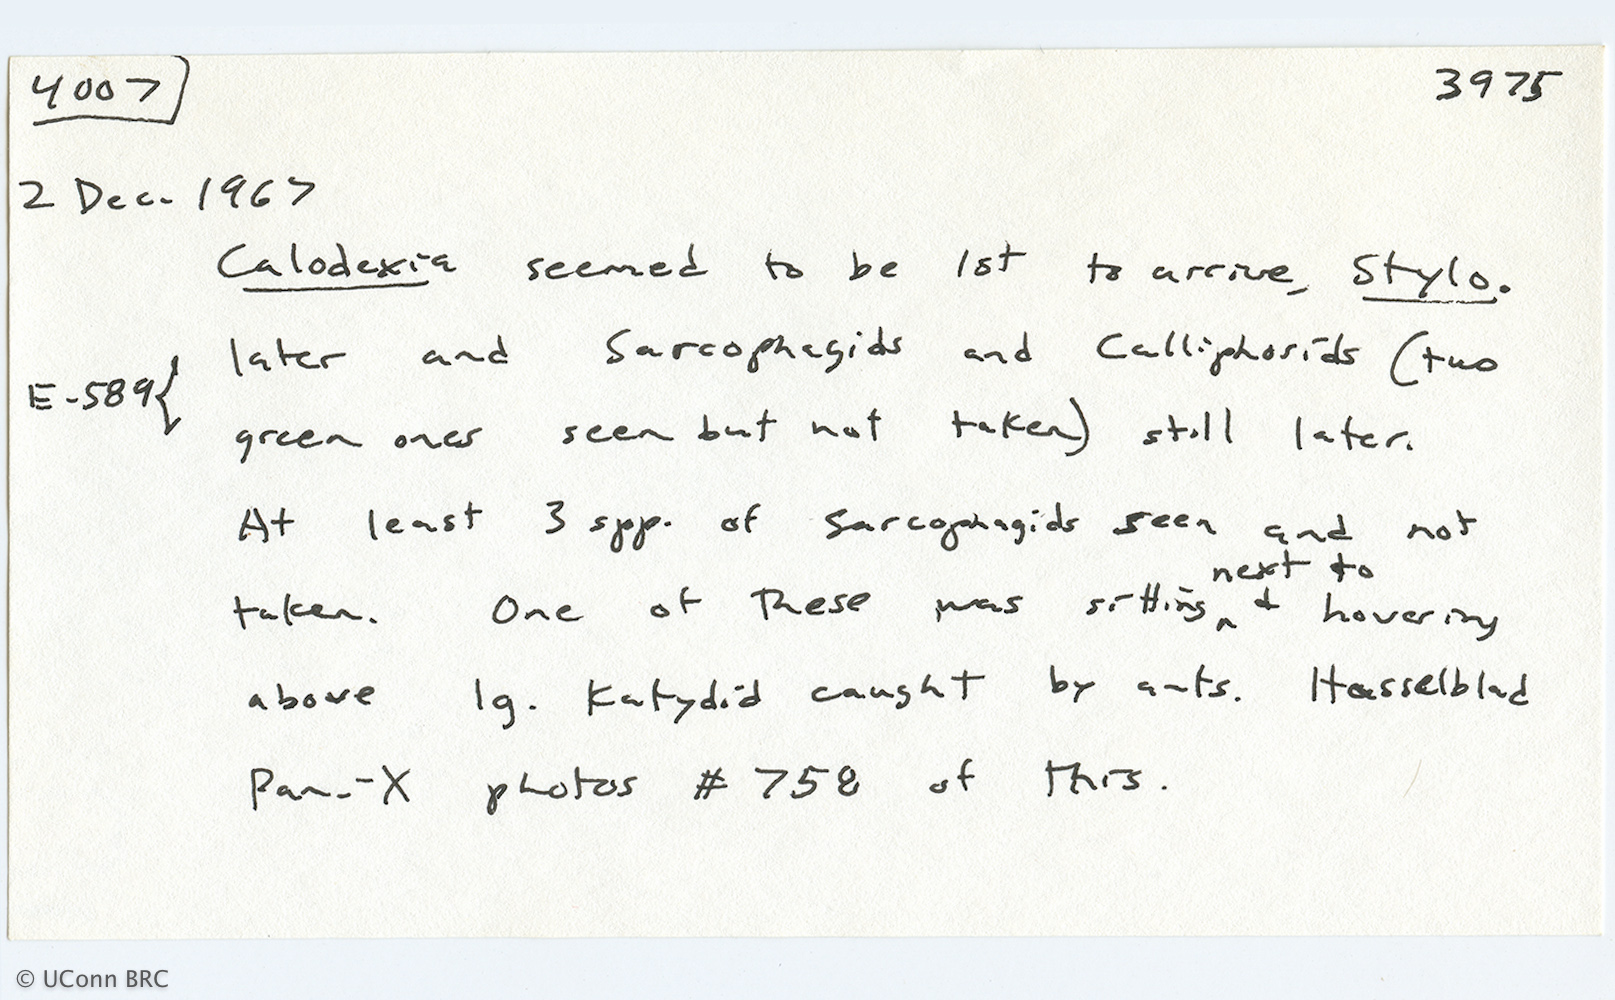 4007 3975
2 Dec. 1967
Calodexia seemed to be 1st to arrive, Stylo.
later and Sarcophagids and Calliphorids (two
E-589{
green ones seen but not taken) still later.
At least 3 spp. of Sarcophagids seen and not
next to
taken. One of These was sitting ^ & hovering
above lg. Katydid caught by ants. Hasselblad
Pan.-X photos # 758 of This.
© UConn BRC